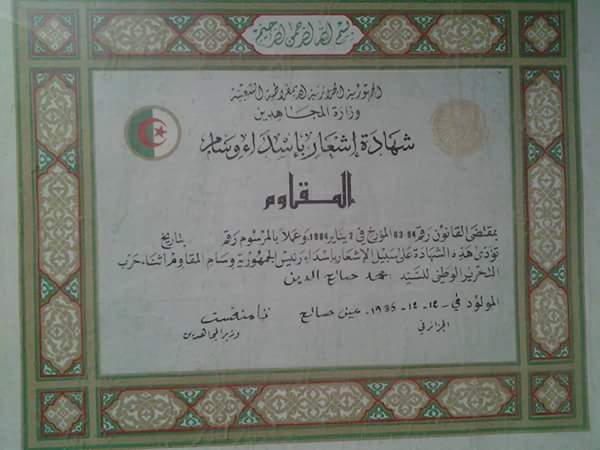 بسم الله الرحمن الرحيم
الجمهورية الجزائرية الديمقراطية الشعبية
وزارة المجاهدين
شهادة إشعار بإسداء وسام
المقاوم
بمقتضى القانون رقم 84-03 المؤرخ في 2 يناير 1984، وعملا بالمرسوم رقم بتاريخ
تؤدى هذه الشهادة على سبيل الإشعار بإسداء رئيس الجمهورية وسام المقاوم أثناء حرب
التحرير الوطني للسيد محمد صالح الدين
المولود في 1935 عين صالح
الجزائر في
وزير المجاهدين